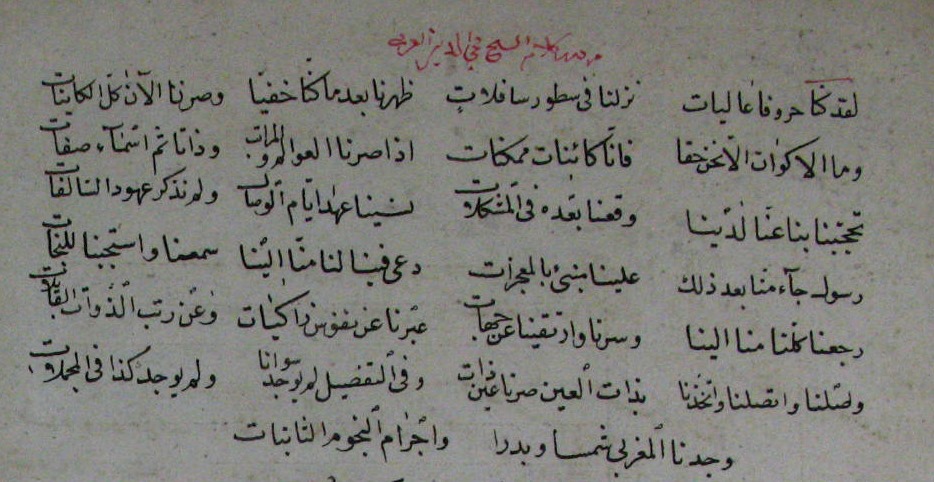 لقد كنا حروفا عاليات نزلنا فى سطور سافلات ظهرنا بعد ما كنا خفيّا وصرنا الآن كل الكاينات
وما الاكوان الا نحن حقا فانّا كائنات ممكنات اذا صرنا العوالم وذاتا ثم اسمآء صفات
تحجبنا بنا عنّا لدينا وقعنا بعده فى المشكلات نسينا عهد ايّام الوصال ولم نذكر عهود السالفات
رسول جآء منا بعد ذلك علينا منبئ بالمعجزات دعى فينا لنا منّا الينا سمعنا واستجبنا للنجات
رجعنا كلنا منا الينا وسرنا وارتقينا عن جهات عبرنا عن نفوس زاكيات وعن رتب الذوات القابلات
وصلنا واتصلنا واتخذنا بذات العين صرنا عين ذات وفى التفضيل لم يوجد سوانا ولم يوجد كذا فى المجملات
وجدنا المغربى شمسا وبدرا واجرام النجوم الثابتات